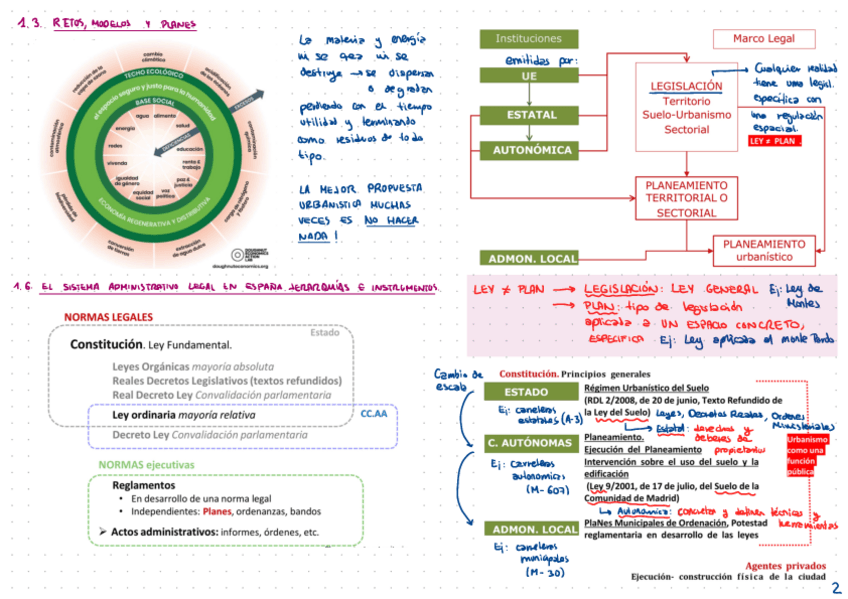 1.3. RETOS, MODELOS Y PLANES
cambio
climático
acidificación
de los océanos
contaminación
química
carga de nitrógeno
y fósforo
extracción de
agua dulce
conversión
de tierras
pérdida de
biodiversidad
contaminación
atmosférica
reducción de la
capa de ozono
TECHO ECOLÓGICO
el espacio seguro y justo para la humanidad
BASE SOCIAL
EXCESO
DEFICIENCIA
agua
alimento
salud
educación
renta &
trabajo
paz &
justicia
voz
política
equidad
social
igualdad
de género
vivienda
redes
energía
ECONOMÍA REGENERATIVA Y DISTRIBUTIVA
DOUGHNUT
ECONOMICS
ACTION
LAB
doughnuteconomics.org
La materia y energía
ni se crea ni se
destruye → se dispersan
o degradan
perdiendo con el tiempo
utilidad y terminando
como residuos de todo
tipo.
LA MEJOR PROPUESTA
URBANISTICA MUCHAS
VECES ES NO HACER
NADA!
Instituciones
Marco Legal
emitidas por:
UE
ESTATAL
AUTONÓMICA
ADMON. LOCAL
LEGISLACIÓN
Territorio
Suelo-Urbanismo
Sectorial
Cualquier realidad
tiene una legisl.
específica con
una regulación
espacial.
LEY ≠ PLAN
PLANEAMIENTO
TERRITORIAL O
SECTORIAL
PLANEAMIENTO
urbanístico
1.6. EL SISTEMA ADMINISTRATIVO LEGAL EN ESPAÑA. JERARQUÍAS E INSTRUMENTOS.
NORMAS LEGALES
Estado
Constitución. Ley Fundamental.
Leyes Orgánicas mayoría absoluta
Reales Decretos Legislativos (textos refundidos)
Real Decreto Ley Convalidación parlamentaria
Ley ordinaria mayoría relativa
CC.AA
Decreto Ley Convalidación parlamentaria
NORMAS ejecutivas
Reglamentos
• En desarrollo de una norma legal
• Independientes: Planes, ordenanzas, bandos
➢ Actos administrativos: informes, órdenes, etc.
LEY ≠ PLAN → LEGISLACIÓN: LEY GENERAL Ej: Ley de
Montes
→ PLAN: tipo de legislación
aplicada a UN ESPACIO CONCRETO,
ESPECIFICA Ej: Ley aplicada al monte Pardo
Cambio de
escala
Constitución. Principios generales
ESTADO
Ej: carreteras
estatales (A-3)
Régimen Urbanístico del Suelo
(RDL 2/2008, de 20 de junio, Texto Refundido de
la Ley del Suelo) Leyes, Decretos Reales, Ordenes
Ministeriales
→ Estatal: derechos y
deberes de
propietarios
C. AUTÓNOMAS
Ej: carreteras
autonomicas
(M-607)
Planeamiento.
Ejecución del Planeamiento
Intervención sobre el uso del suelo y la
edificación
(Ley 9/2001, de 17 de julio, del Suelo de la
Comunidad de Madrid)
→ Autonómica: concretos y definen técnicas y
herramientas
Urbanismo
como una
función
pública
ADMON. LOCAL
Ej: carreteras
municipales
(M-30)
PlaNes Municipales de Ordenación, Potestad
reglamentaria en desarrollo de las leyes
Agentes privados
Ejecución- construcción física de la ciudad
2